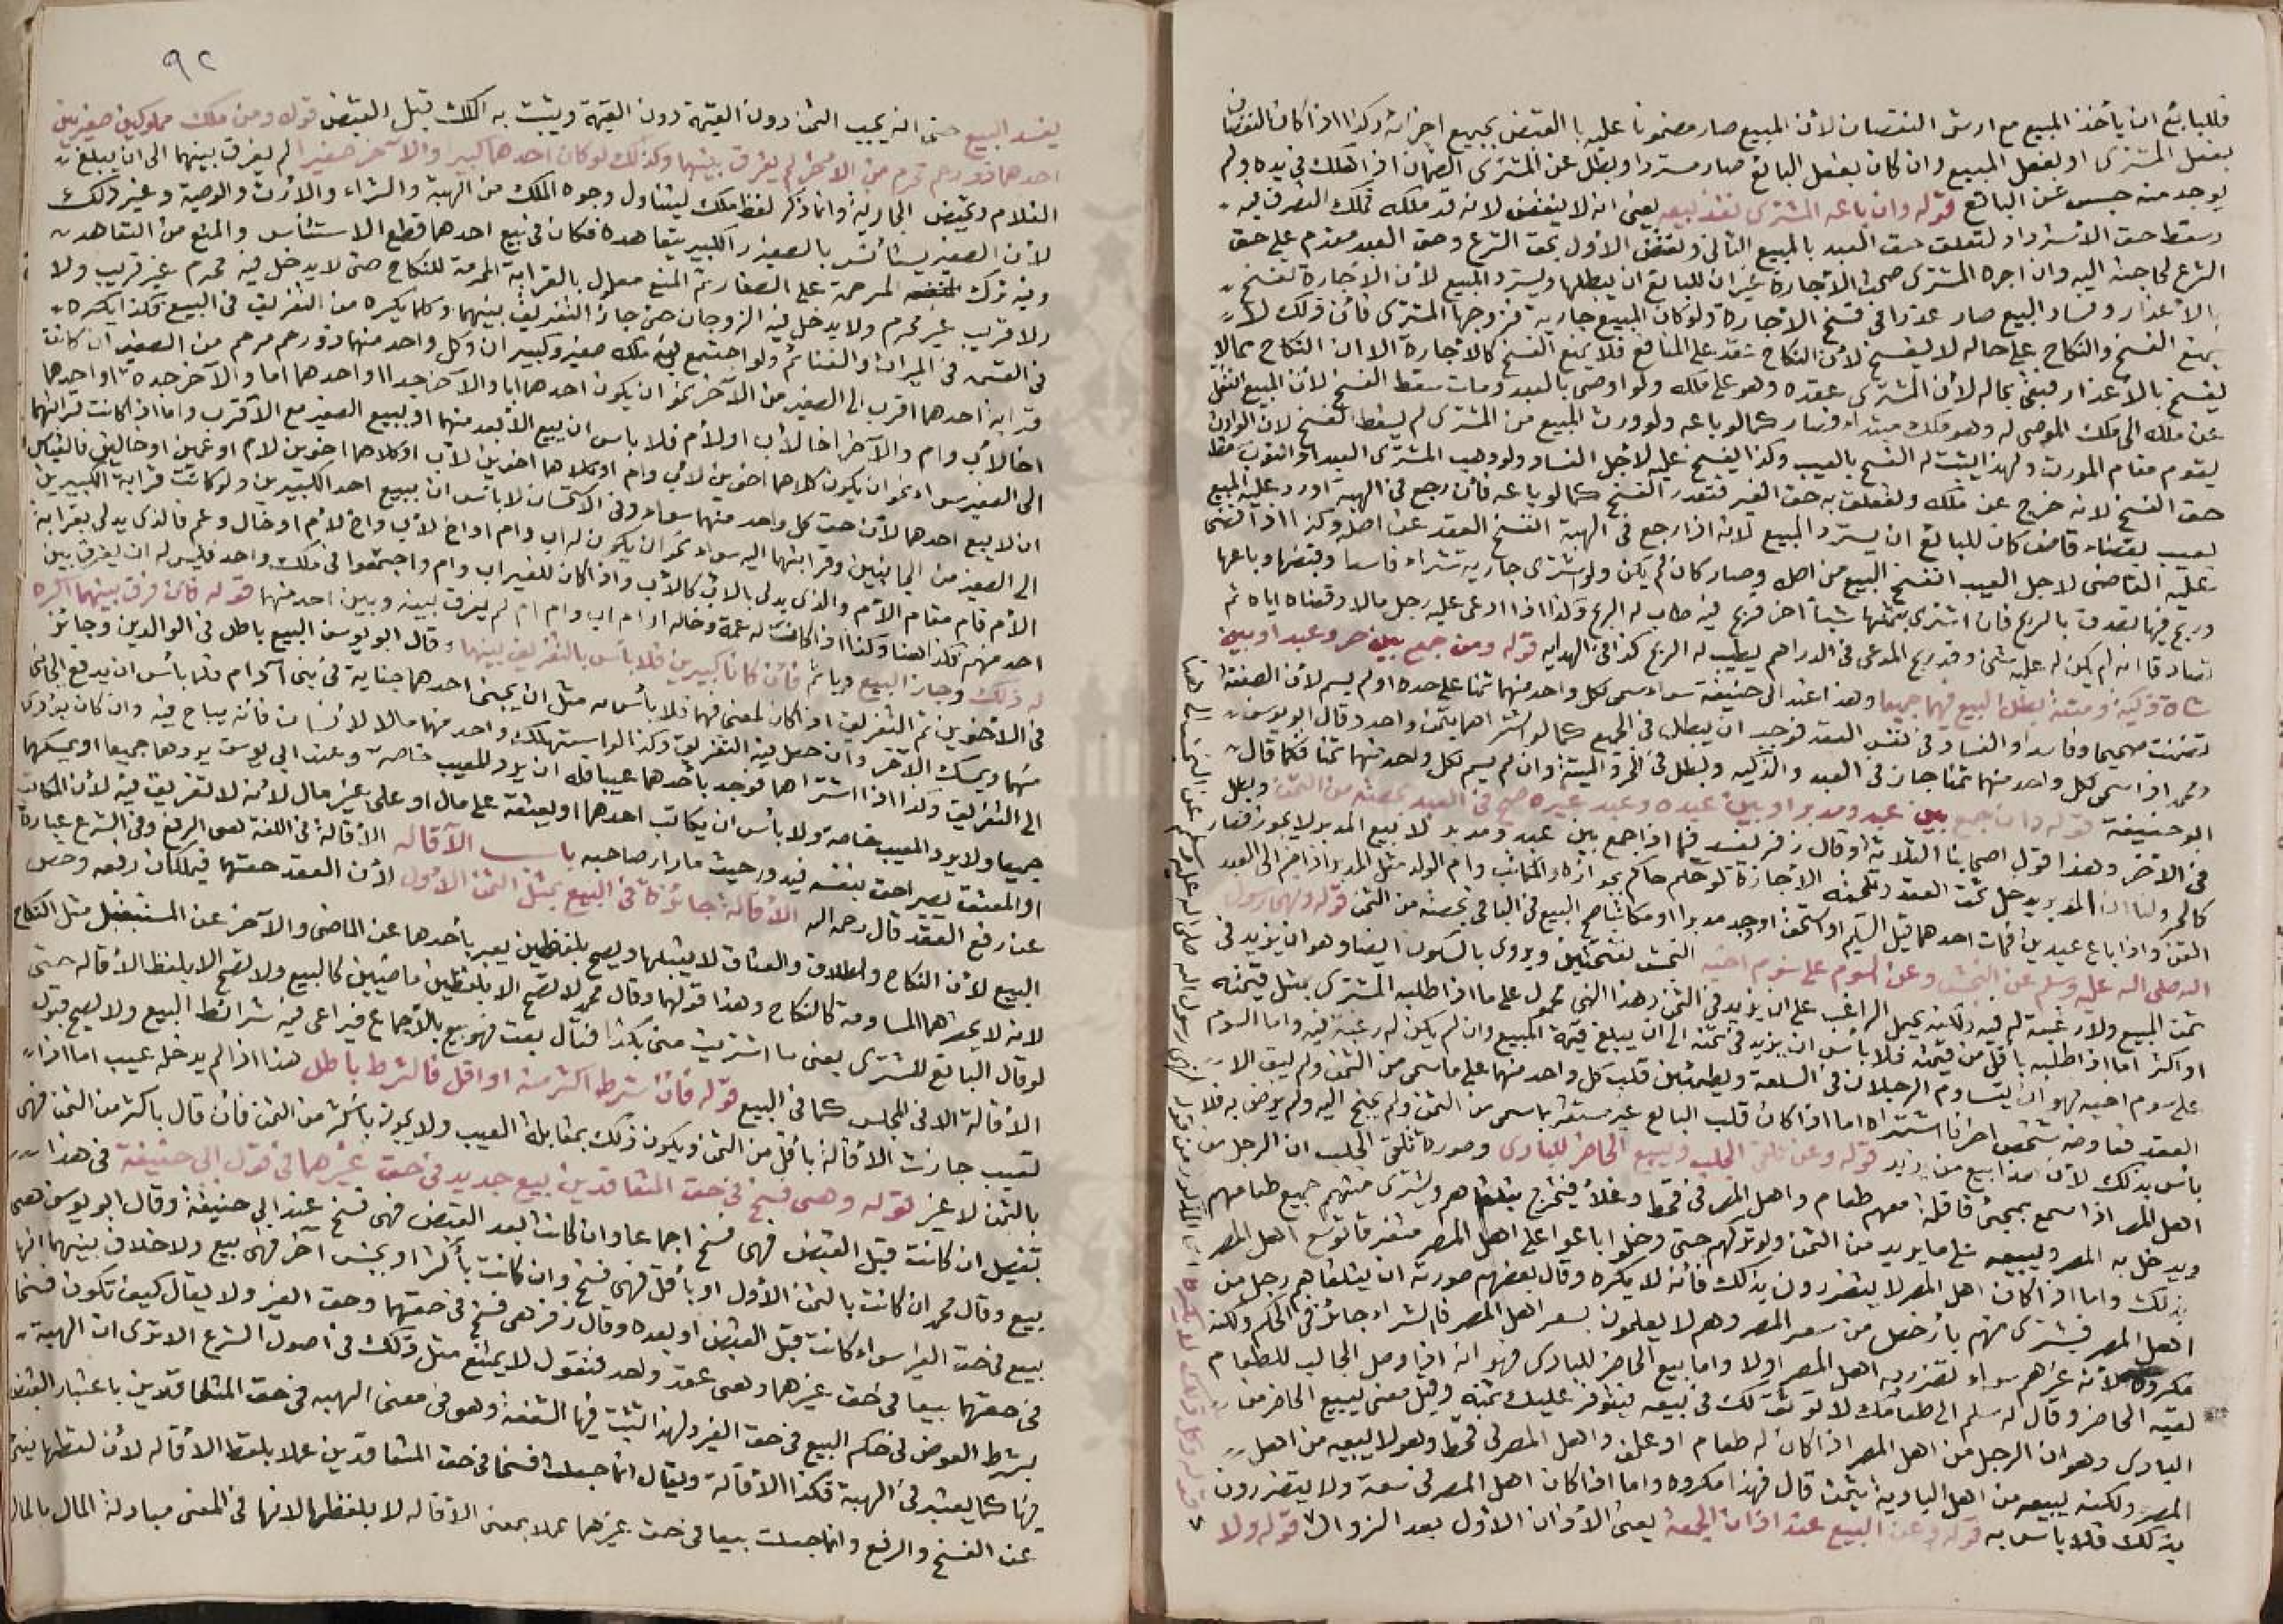 فللبائع ان يأخذ المبيع مع ارش النقصان لان المبيع صار مضمونا عليه بالقبض بجميع اجزائه وكذا اذا كان النقصان
بفعل المشترى او بفعل المبيع وان كان بفعل البائع صار مستردا وبطل عن المشترى الضمان اذا هلك فى يده ولم
يوجد منه حبس عن البائع قوله وان باعه المشترى نفذ بيعه يعنى انه لا ينقض لانه قد ملكه فملك التصرف فيه
وسقط حق الاسترداد لتعلق حق العبد بالمبيع الثانى ونقض الاول بحق الشرع وحق العبد مقدم على حق
الشرع لحاجته اليه وان اجره المشترى صحت الاجارة غير ان للبائع ان يبطلها ويسترد المبيع لان الاجارة تفسخ
بالاعذار وفساد البيع صار عذرا فى فسخ الاجارة ولو كان المبيع جارية فزوجها المشترى فان ذلك لا
يمنع الفسخ والنكاح على حاله لا ينفسخ لان النكاح عقد على المنافع فلا يمنع الفسخ كالاجارة الا ان النكاح مما لا
يفسخ بالاعذار فبقى بحاله لان المشترى عقده وهو على ملكه ولو اوصى بالعبد ومات سقط الفسخ لان المبيع انتقل
عن ملكه الى ملك الموصى له وهو ملك مبتدأ فصار كما لو باعه ولو ورث المبيع من المشترى لم يسقط الفسخ لان الوارث
يقوم مقام المورث ولهذا يثبت له الفسخ بالعيب وكذا يفسخ عليه لاجل الفساد ولو وهب المشترى العبد او الثوب سقط
حق الفسخ لانه خرج عن ملكه ولتعلق به حق الغير فتعذر الفسخ كما لو باعه فان رجع فى الهبة او رد عليه المبيع
بعيب بقضاء قاض كان للبائع ان يسترد المبيع لانه اذا رجع فى الهبة انفسخ العقد عن اصله وكذا اذا قضى
عليه القاضى لاجل العيب انفسخ البيع من اصله وصار كان لم يكن ولو اشترى جارية شراء فاسدا وقبضها وباعها
وربح فيها تصدق بالربح فان اشترى بثمنها شيئا آخر فربح فيه طاب له الربح وكذا اذا ادعى على رجل مالا وقضاه اياه ثم
تصادقا انه لم يكن له عليه شئ وقد ربح المدعى فى الدراهم يطيب له الربح كذا فى الهدايه قوله ومن جمع بين حر وعبد او بين
شاة ذكية وميتة بطل البيع فيهما جميعا وهذا عند ابى حنيفة سواء سمى لكل واحد منهما ثمنا على حدة او لم يسم لان الصفقة
تضمنت صحيحا وفاسدا والفساد فى نفس العقد فوجب ان يبطل فى الجميع كما لو اشتراهما بثمن واحد وقال ابو يوسف
ومحمد اذا سمى لكل واحد منهما ثمنا جاز فى العبد والذكيه وبطل فى الحر والميتة وان لم يسم لكل واحد منهما ثمنا فكما قال
ابو حنيفة قوله وان جمع بين عبد ومدبر او بين عبده وعبد غيره صح فى العبد بحصته من الثمن وبطل
فى الآخر وهذا قول اصحابنا الثلاثة وقال زفر يفسد فيما اذا جمع بين عبد ومدبر لان بيع المدبر لا يجوز فصار
كالحر ولنا ان المدبر يدخل تحت العقد وتلحقه الاجازة لو حكم حاكم بجوازه والمكاتب وام الولد مثل المدبر اذا ضم الى العبد
القن واذا باع عبدين فمات احدهما قبل التسليم او استحق او وجد مدبرا او مكاتبا صح البيع فى الباقى بحصته من الثمن قوله ونهى رسول
الله صلى الله عليه وسلم عن النجش وعن السوم على سوم اخيه النجش بفتحتين ويروى بالسكون ايضا وهو ان يزيد فى
ثمن المبيع ولا رغبة له فيه ولكنه يحمل الراغب على ان يزيد فى الثمن وهذا النهى محمول على ما اذا طلبه المشترى بمثل قيمته
او اكثر اما اذا طلبه باقل من قيمته فلا بأس ان يزيد فى ثمنه الى ان يبلغ قيمة المبيع وان لم يكن له رغبة فيه واما السوم
على سوم اخيه فهو ان يتساوم الرجلان فى السلعة ويطمئن قلب كل واحد منهما على ما سمى من الثمن ولم يبق الا
العقد فعارضه شخص آخر فاشتراه اما اذا كان قلب البائع غير مستقر بما سمى من الثمن ولم يجنح اليه ولم يرض به فلا
بأس بذلك لان هذا بيع من يزيد قوله وعن تلقى الجلب وبيع الحاضر للبادى وصورة تلقى الجلب ان الرجل من
اهل المصر اذا سمع بمجئ قافلة معهم طعام واهل المصر فى قحط وغلاء فيخرج يتلقاهم ويشترى منهم جميع طعامهم
ويدخل به المصر ويبيعه على ما يريد من الثمن ولو تركهم حتى دخلوا باعوا على اهل المصر متفرقا توسع اهل المصر
بذلك واما اذا كان اهل المصر لا يتضررون بذلك فانه لا يكره وقال بعضهم صورته ان يتلقاهم رجل من
اهل المصر فيشترى منهم بارخص من سعر المصر وهم لا يعلمون بسعر اهل المصر فالشراء جائز فى الحكم ولكنه
مكروه لانه غرهم سواء تضرر به اهل المصر او لا واما بيع الحاضر للبادى فهو انه اذا وصل الجالب للطعام
لقيه الحاضر وقال له سلم الى طعامك لاتوثق لك فى بيعه ليتوافر عليك ثمنه وقيل معنى بيع الحاضر من
البادى وهو ان الرجل من اهل المصر اذا كان له طعام او علف واهل المصر فى قحط وهو لا يبيعه من اهل
المصر ولكنه يبيعه من اهل البادية بثمن قال فهذا مكروه واما اذا كان اهل المصر فى سعة ولا يتضررون
بذلك فلا بأس به قوله وعن البيع عند اذان الجمعة يعنى الاذان الاول بعد الزوال قوله ولا
٩٢
يفسد البيع حتى انه يجب الثمن دون القيمة ويثبت به الملك قبل القبض قوله ومن ملك مملوكين صغيرين
احدهما ذو رحم محرم من الآخر لم يفرق بينهما وكذلك لو كان احدهما كبيرا والآخر صغيرا لم يفرق بينهما الى ان يبلغ
الغلام وتحيض الجارية وانما ذكر لفظ ملك ليتناول وجوه الملك من الهبة والشراء والارث والوصية وغير ذلك
لان الصغير يستأنس بالصغير والكبير يتعاهده فكان فى بيع احدهما قطع الاستئناس والمنع من التعاهد
وفيه ترك المرحمة على الصغار ثم المنع معلول بالقرابة المحرمة للنكاح حتى لا يدخل فيه محرم غير قريب ولا
ولا قريب غير محرم ولا يدخل فيه الزوجان حتى جاز التفريق بينهما وكلما يكره من التفريق فى البيع فكذا يكره
فى القسمة فى الميراث والغنائم ولو اجتمع فى ملكه صغير وكبيران وكل واحد منهما ذو رحم محرم من الصغير ان كانت
قرابة احدهما اقرب الى الصغير من الآخر نحو ان يكون احدهما ابا والآخر جدا او احدهما اما والآخر جدة او احدهما
اخا لاب وام والآخر اخا لاب او لام فلا باس ان يبيع الابعد منهما او يبيع الصغير مع الاقرب واما اذا كانت قرابتهما
الى الصغير سواء نحو ان يكون كلاهما اخوين لاب وام او كلاهما اخوين لاب او كلاهما اخوين لام او عمين او خالين فالقياس
ان لا يبيع احدهما لان حق كل واحد منهما سواء وفى الاستحسان لا بأس ان يبيع احد الكبيرين ولو كانت قرابة الكبيرين
الى الصغير من الجانبين وقرابتهما اليه سواء نحو ان يكون له اب وام او اخ لاب واخ لام او خال وعم فالذى يدلى بقرابة
الام قام مقام الام والذى يدلى بالاب كالاب واذا كان للصغير اب وام واجتمعوا فى ملك واحد فليس له ان يفرق بين
احد منهم فكذا هنا وكذا اذا كانت له عمة وخاله او ام اب وام ام لم يفرق بينه وبين احد منهما قوله فان فرق بينهما كره
له ذلك وجاز البيع ويأثم فان كانا كبيرين فلا بأس بالتفريق بينهما وقال ابو يوسف البيع باطل فى الوالدين وجائز
فى الاخوين ثم التفريق اذا كان لمعنى فيهما فلا بأس به مثل ان يجنى احدهما جناية فى بنى آدم فلا بأس ان يدفع الجانى
منهما ويمسك الآخر وان حصل فيه التفريق وكذا لو استهلك واحد منهما مالا لانسان فانه يباع فيه وان كان يؤدى
الى التفريق وكذا اذا اشتراهما فوجد باحدهما عيبا فله ان يرد المعيب خاصة وعند ابى يوسف يردهما جميعا او يمسكهما
جميعا ولا يرد المعيب خاصة ولا بأس ان يكاتب احدهما او يعتقه على مال او على غير مال لانه لا تفريق فيه لان المكاتب
او المعتق يصير احق بنفسه فيدور حيث ما دار صاحبه باب الاقاله الاقالة فى اللغة هى الرفع وفى الشرع عبارة
عن رفع العقد قال رحمه الله الاقالة جائزة فى البيع بمثل الثمن الاول لان العقد حقهما فيملكان رفعه وخص
البيع لان النكاح والطلاق والعتاق لا يقبلها ويصح بلفظين يعبر باحدهما عن الماضى والآخر عن المستقبل مثل النكاح
لانه لا يحضرهما المساومة كالنكاح وهذا قولهما وقال محمد لا تصح الا بلفظين ماضيين كالبيع ولا تصح الا بلفظ الاقاله حتى
لو قال البائع للمشترى بعنى ما اشتريت منى بكذا فقال بعت فهو بيع بالاجماع فيراعى فيه شرائط البيع ولا يصح قبول
الاقالة الا فى المجلس كما فى البيع قوله فان شرط اكثر منه او اقل فالشرط باطل هذا اذا لم يدخله عيب اما اذا
تعيب جازت الاقالة باقل من الثمن ويكون ذلك بمقابلة العيب ولا يجوز باكثر من الثمن فان قال باكثر من الثمن فهى
بالثمن لا غير قوله وهى فسخ فى حق المتعاقدين بيع جديد فى حق غيرهما فى قول ابى حنيفة فى هذا
تفصيل ان كانت قبل القبض فهى فسخ اجماعا وان كانت بعد القبض فهى فسخ عند ابى حنيفة وقال ابو يوسف هى
بيع وقال محمد ان كانت بالثمن الاول او باقل فهى فسخ وان كانت باكثر او بجنس آخر فهى بيع ولا خلاف بينهما انها
بيع فى حق الغير سواء كانت قبل القبض او بعده وقال زفر هى فسخ فى حقهما وحق الغير ولا يقال كيف تكون فسخا
فى حقهما بيعا فى حق غيرهما وهى عقد واحد فنقول لا يمتنع مثل ذلك فى اصول الشرع الا ترى ان الهبة
بشرط العوض فى حكم البيع فى حق الغير ولهذا تثبت فيها الشفعة وهو فى معنى الهبه فى حق المتعاقدين باعتبار القبض
فيها كما يعتبر فى الهبة فكذا الاقالة ويقال انما جعلت فسخا فى حق المتعاقدين عملا بلفظ الاقاله لان لفظها ينبئ
عن الفسخ والرفع وانما جعلت بيعا فى حق غيرهما عملا بمعنى الاقاله لا بلفظها لانها فى المعنى مبادلة المال بالمال